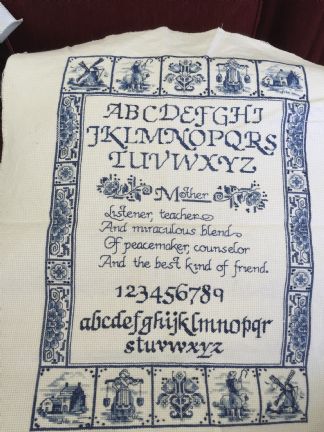 ABCDEFGHI
JKLMNOPQRS
TUVWXYZ
Mother
Listener, teacher
And miraculous blend
Of peacemaker, counselor
And the best kind of friend.
123456789
abcdefghijklmnopqr
stuvwxyz